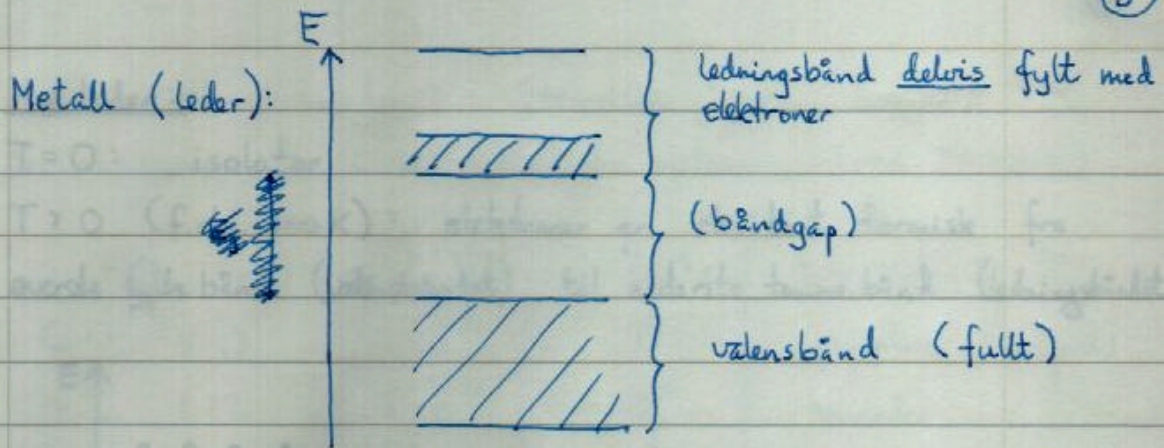 E
Metall (leder):
ledningsbånd delvis fylt med
elektroner
(båndgap)
valensbånd (fullt)